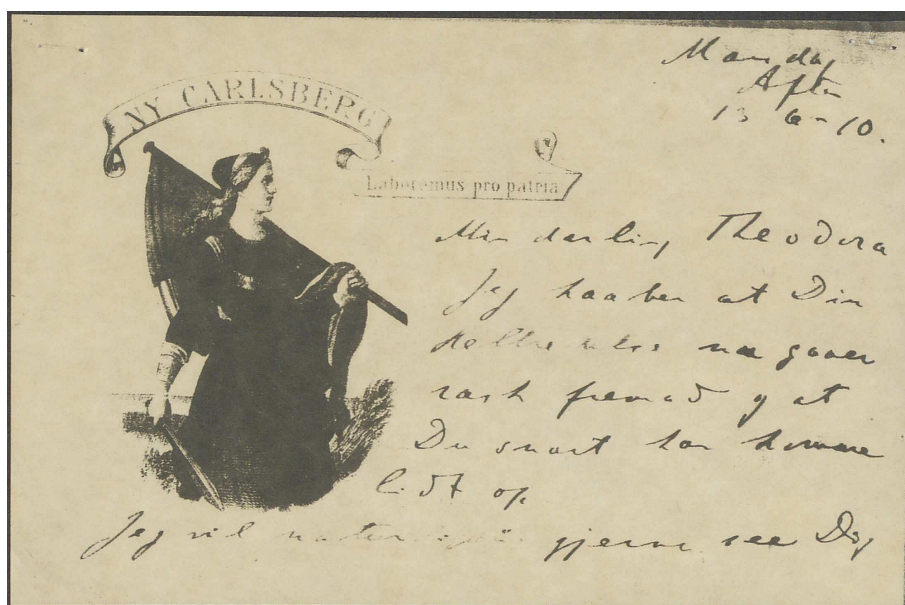 Mandag
Aften
13 6-10.
NY CARLSBERG
Laboremus pro patria
Min darling Theodora
Jeg haaber at Din
nu gaaer
rask fremad og at
Du snart kan komme
lidt op
Jeg vil naturligvis gjerne see Dig